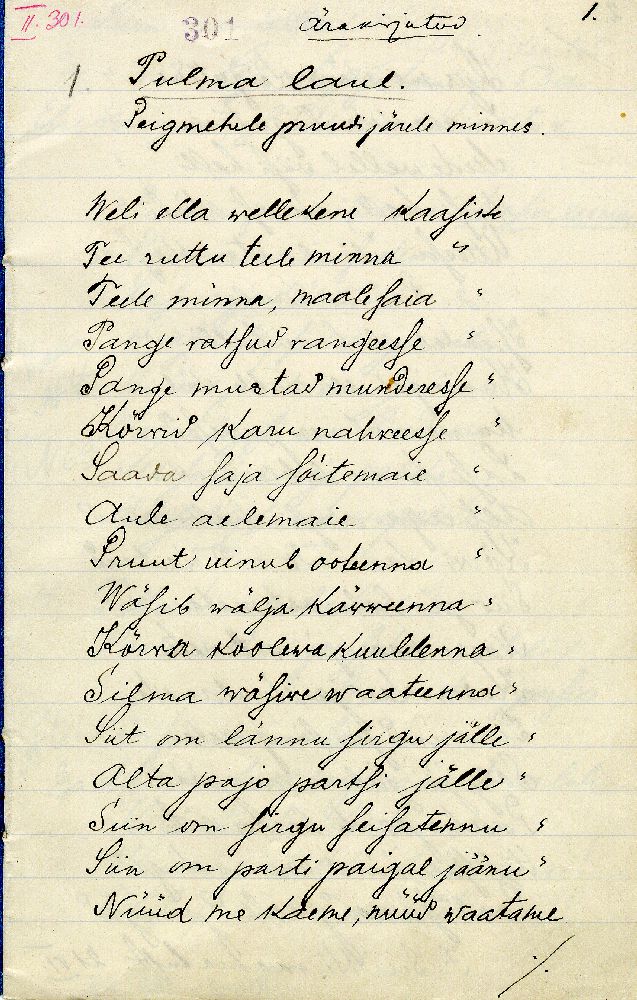 II 301.
301
Ärakirjutud.
1.
1. Pulma laul.
Peigmehele pruudi järele minnes.
Weli ella wellekene Kaasike
Tee ruttu teele minna "
Teele minna, maale saia "
Pange ratsud rangeesse "
Pange mustad munderesse "
Kõrvid Karu nahkeesse "
Saada saja sõitemaie "
Aule aelemaie "
Pruut uinub ooteenna "
Wäsib wälja Käwweenna "
Kõrva Koolewa Kuulelenna "
Silma wäsiwe waateenna "
Siit om lännu sirgu jälle "
Alta pajo partsi jälle "
Siin om sirgu seisatennu "
Siin om parti paigal jäänu "
Nüüd me Kaeme, nüüd waatame
./.